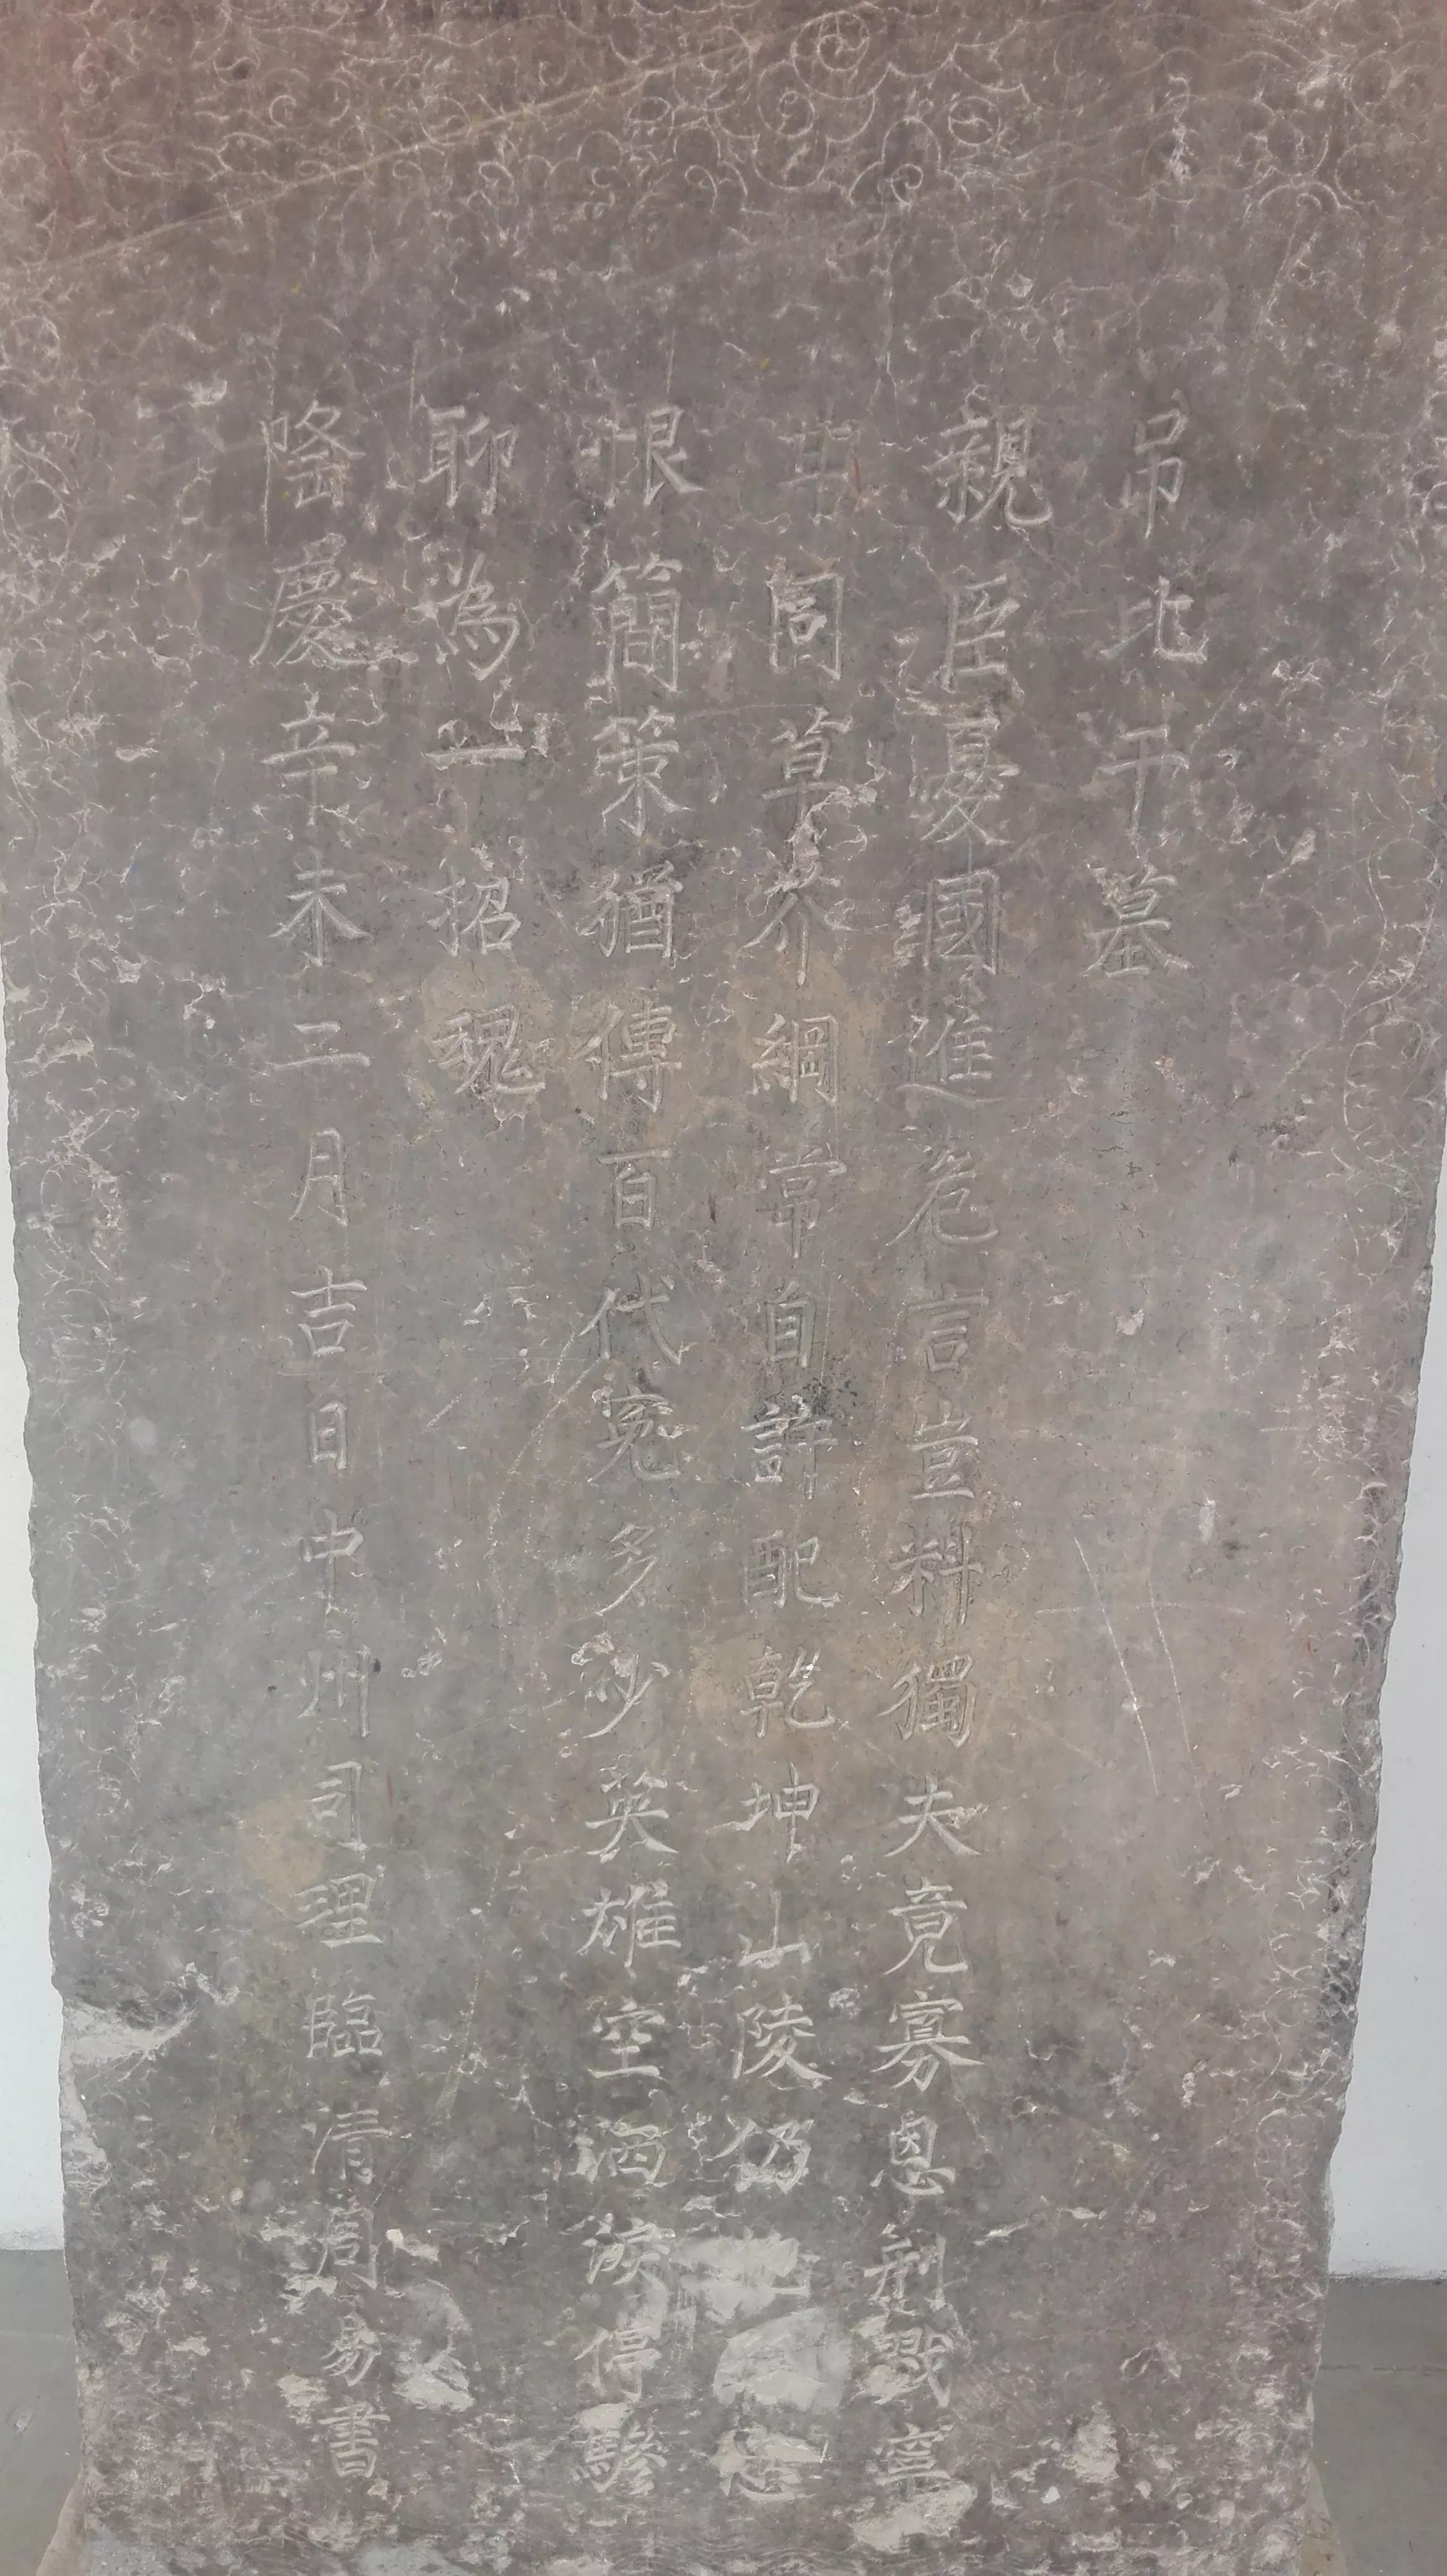 吊比干墓
親臣憂國進危言豈料獨夫竟寡恩剖戮寧
甘同草芥綱常自許配乾坤山陵仍
恨簡策猶傳百代寃多少英雄空洒淚停驂
聊為一招魂
隆慶辛未二月吉日中州司理臨清周易書